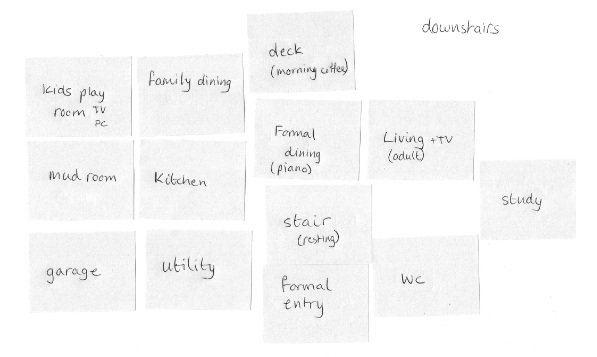 downstairs
deck
(morning coffee)
kids play
room TV
PC
family dining
Formal
dining
(piano)
Living + TV
(adult)
mud room
Kitchen
study
stair
(resting)
garage
utility
formal
entry
WC